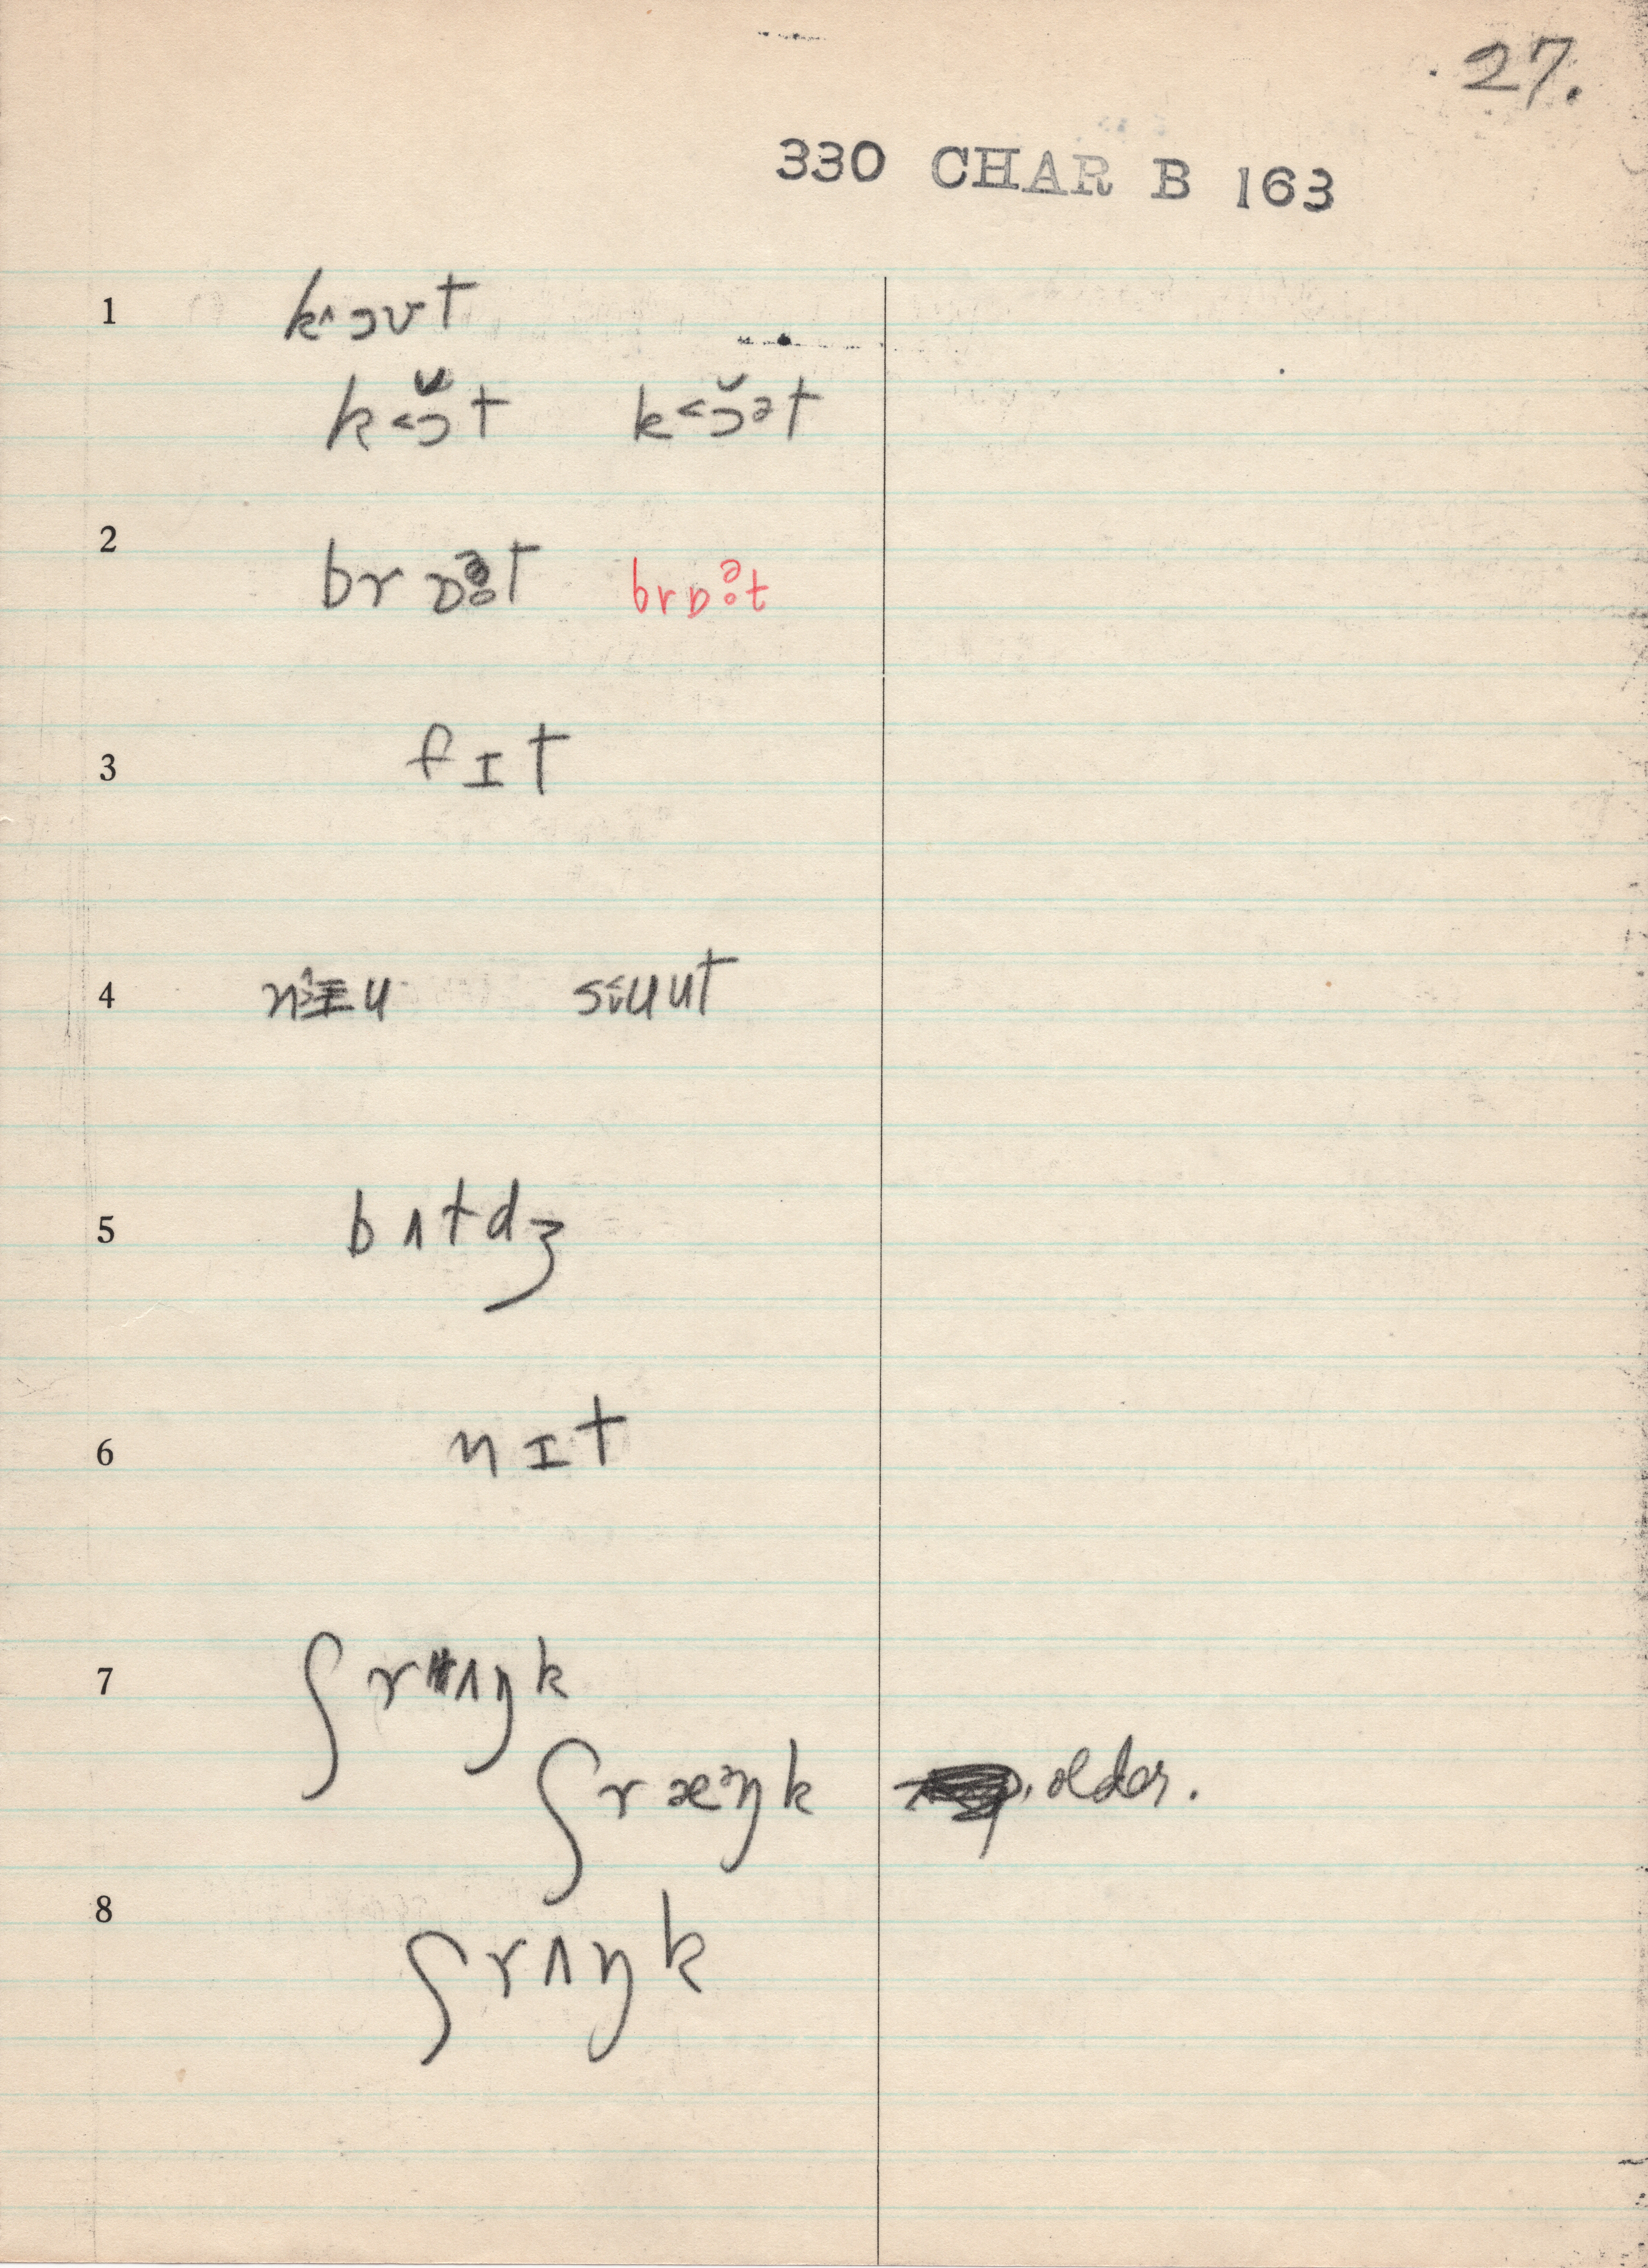 27.
330 CHAR B 163
1 k^ɔʊt
k˂ɔ̆t k˂ɔ̆ət
2 brɒət brɒət
3 fɪt
4 sɨuut
5 bʌtdʒ
6 nɪt
7 ʃrʌŋk
ʃræᵊŋk older.
8 ʃrʌŋk